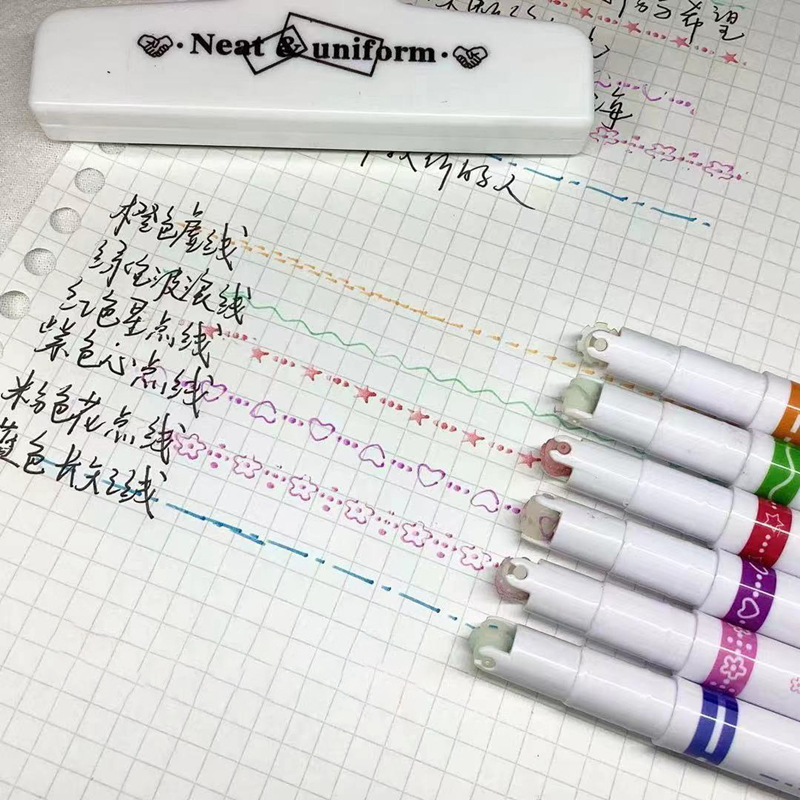 Neat & uniform
海
的人
橙色虚线
绿色波浪线
红色星点线
紫色心点线
粉色花点线
蓝色长短线